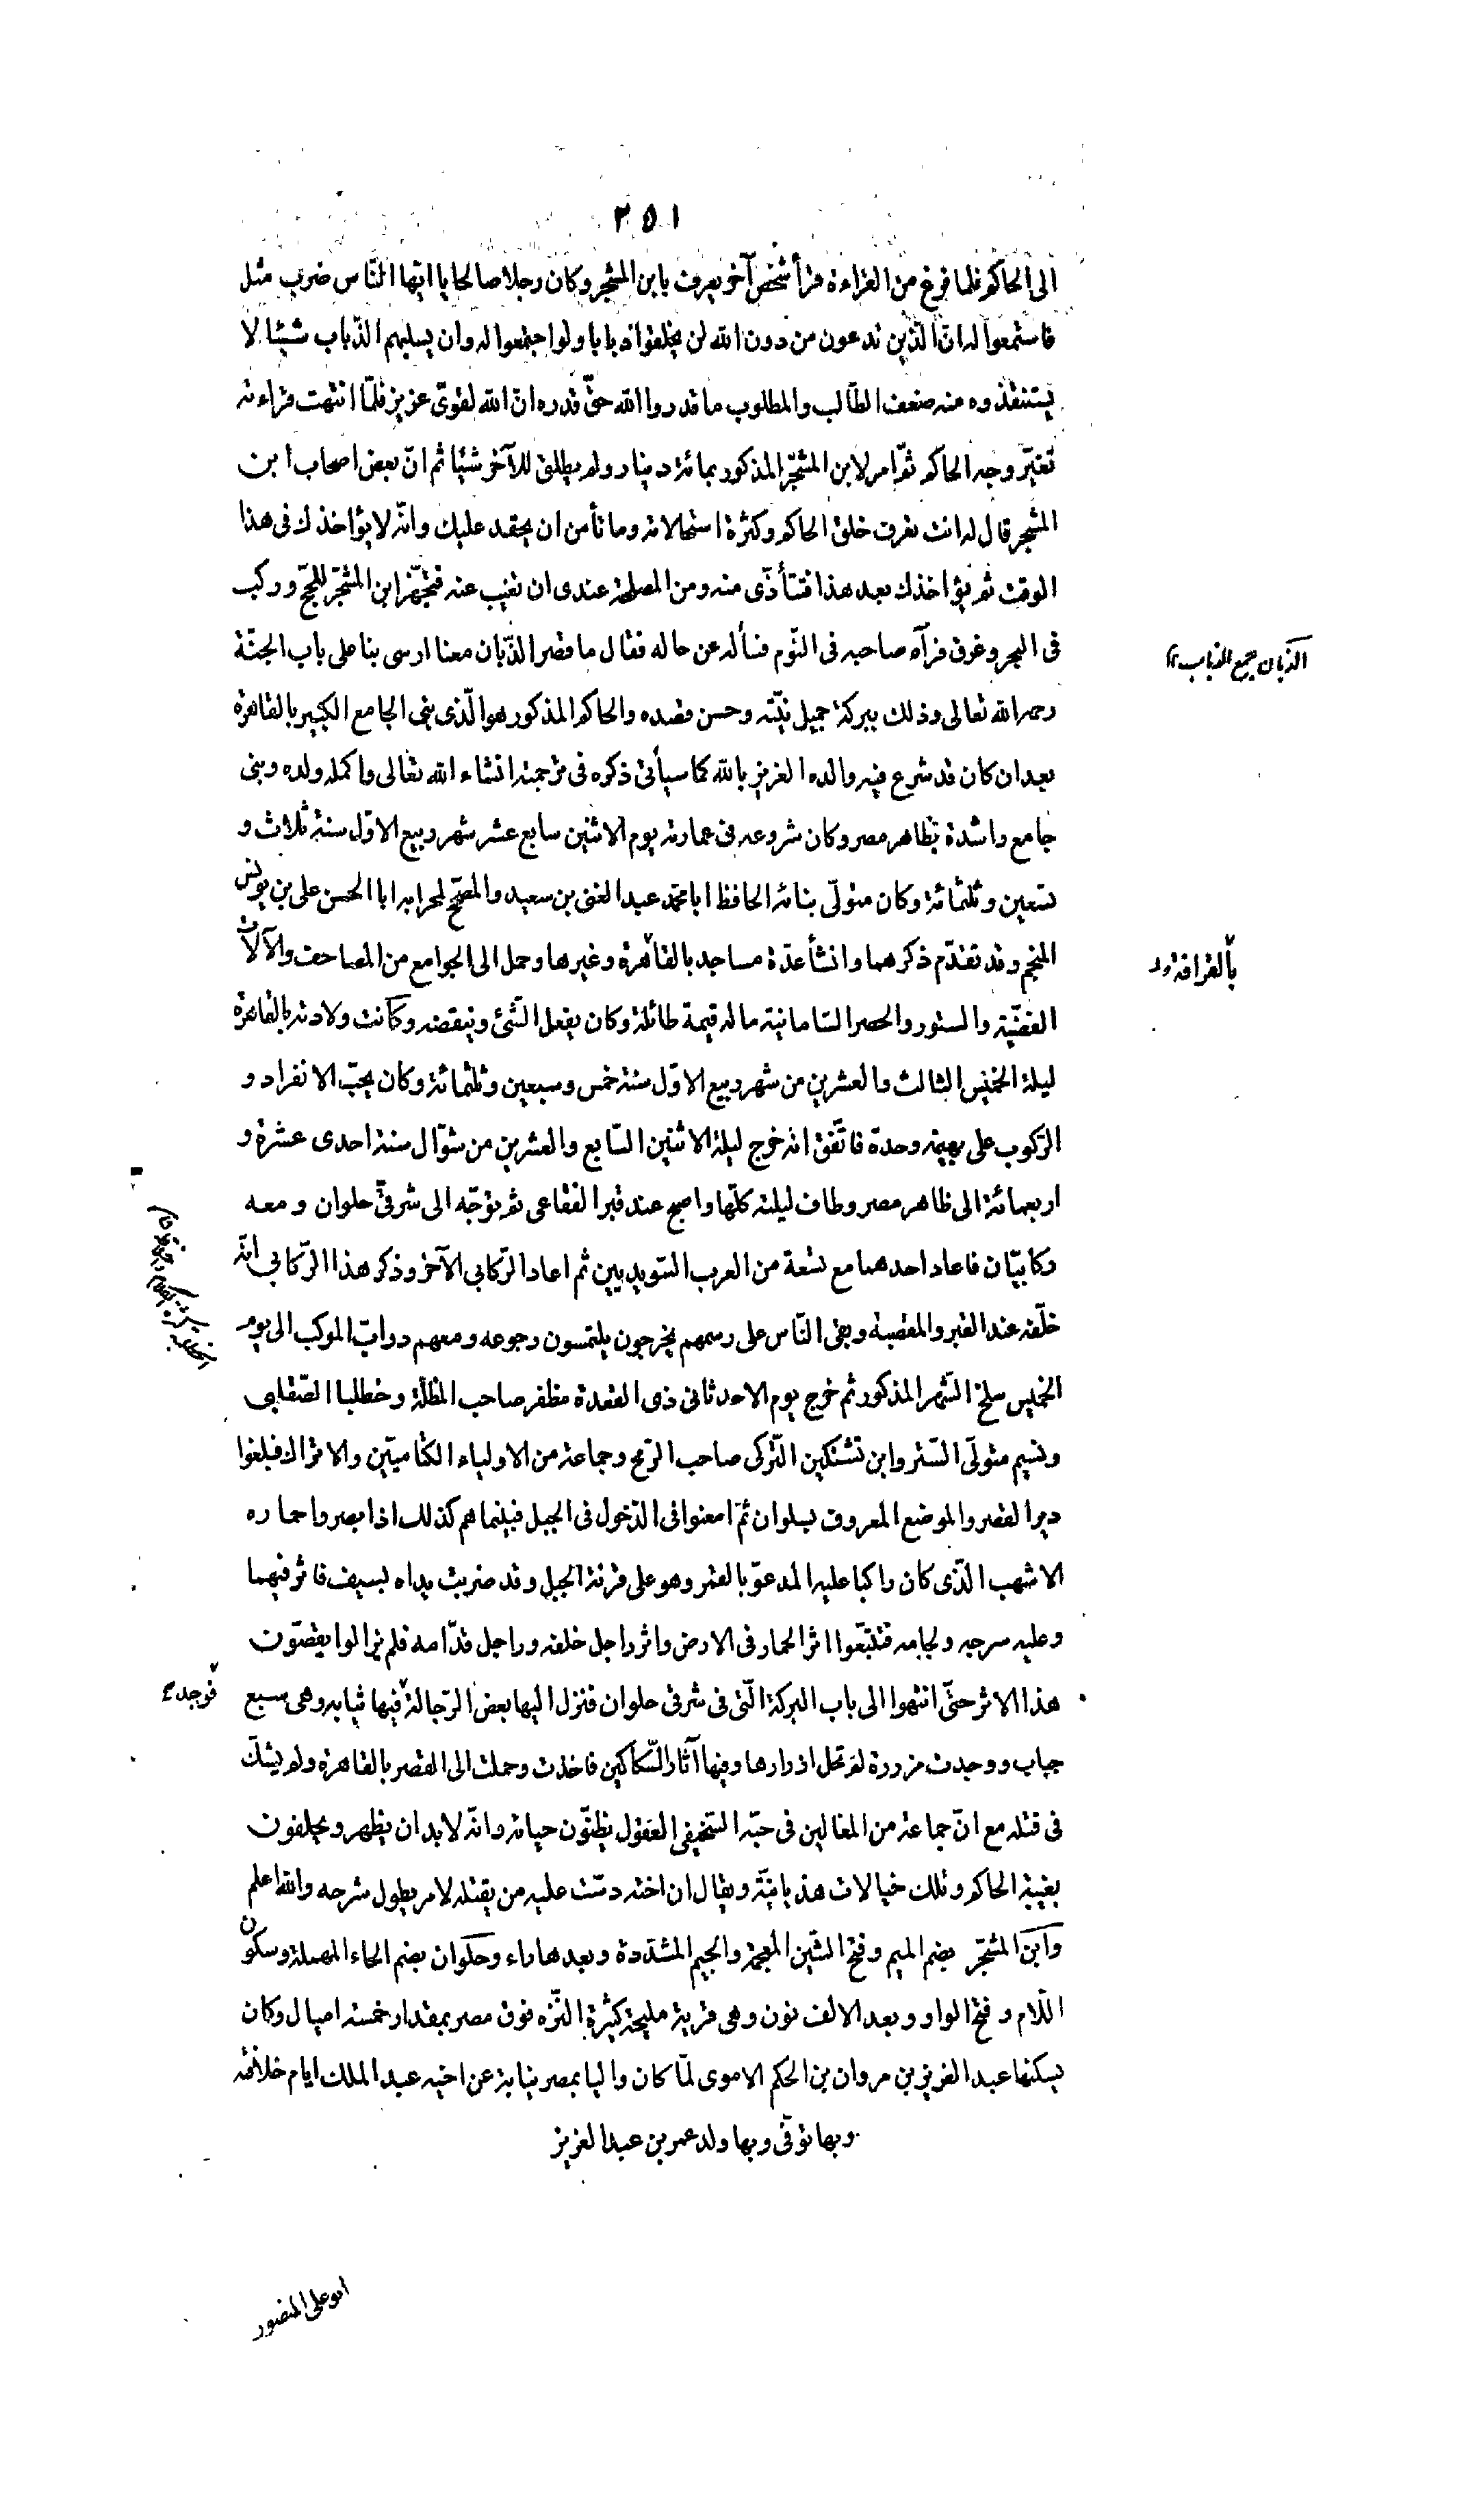 ٢٥١
الى الحاكم فلما فرغ من القراءة قرأ شخص آخر يعرف بابن المشجر وكان رجلا صالحا يا ايها الناس ضرب مثل
فاستمعوا له انّ الذين تدعون من دون الله لن يخلقوا ذبابا ولو اجتمعوا له وان يسلبهم الذباب شيئا لا
يستنقذوه منه ضعف الطالب والمطلوب ما قدروا الله حقّ قدره انّ الله لقوىّ عزيز فلمّا انتهت قراءته
تغيّر وجه الحاكم ثمّ امر لابن المشجّر المذكور بمائة دينار ولم يطلق للآخر شيئا ثم انّ بعض اصحاب ابن
المشجر قال له انت تعرف خلق الحاكم وكثرة استحالاته وما تأمن ان يحقد عليك وانّه لا يؤاخذك فى هذا
الوقت ثم يؤاخذك بعد هذا فتتأذّى منه ومن المصلحة عندى ان تغيب عنه فتجهّز ابن المشجّر للحجّ وركب
فى البحر وغرق فرآه صاحبه فى النّوم فسأله عن حاله فقال ما قصر الذّبان معنا ارسى بنا على باب الجنّة
الذبان جمع الذباب
رحمه الله تعالى وذلك ببركة جميل نيّته وحسن قصده والحاكم المذكور هو الّذى بنى الجامع الكبير بالقاهرة
بعد ان كان قد شرع فيه والده العزيز بالله كما سيأتى ذكره فى ترجمته انشاء الله تعالى واكمله ولده وبنى
جامع راشدة بظاهر مصر وكان شروعه فى عمارته يوم الاثنين سابع عشر شهر ربيع الاوّل سنة ثلاث و
تسعين وثلثمائة وكان متولّى بنائه الحافظ ابا محمّد عبد الغنى بن سعيد والمصحّح لمحرابه ابا الحسن على بن يونس
المنجم وقد تقدّم ذكرهما وانشأ عدّة مساجد بالقاهرة وغيرها وحمل الى الجوامع من المصاحف والآلات
بالقرافة
الفضّيّة والستور والحصر السّامانيّة ماله قيمة طائلة وكان يفعل الشّئ وينقضه وكانت ولادته بالقاهرة
ليلة الخميس الثالث والعشرين من شهر ربيع الاوّل سنة خمس وسبعين وثلثمائة وكان يحبّ الانفراد و
الرّكوب على بهيمة وحدة فاتّفق انه خرج ليلة الاثنين السّابع والعشرين من شوّال سنة احدى عشرة و
اربعمائة الى ظاهر مصر وطاف ليلته كلّها واصبح عند قبر الفقاعى ثم توجّه الى شرقىّ حلوان ومعه
ركابيّان فاعاد احدهما مع تسعة من العرب السّويديين ثم اعاد الرّكابى الآخر وذكر هذا الرّكابى انّه
خلّفه عند القبر والمقصبة وبقى النّاس على رسمهم يخرجون يلتمسون رجوعه ومعهم دوابّ الموكب الى يوم
الخميس سلخ الشّهر المذكور ثم خرج يوم الاحد ثانى ذى القعدة مظفر صاحب المظلّة وخطلبا الصّقلبى
ونسيم متولّى السّتر وابن تشتكين التّركى صاحب الرّمح وجماعة من الاولياء الكتاميّين والاتراك فبلغوا
دير القصر والموضع المعروف بسلوان ثمّ امعنوا فى الدّخول فى الجبل فبينما هم كذلك اذا بصروا حماره
الاشهب الّذى كان راكبا عليه المدعوّ بالقمر وهو على قرنة الجبل وقد ضربت يداه بسيف فاثر فيهما
وعليه سرجه ولجامه فتتبّعوا اثر الحمار فى الارض واثر راجل خلفه وراجل قدّامه فلم يزالوا يقصّون
هذا الاثر حتّى انتهوا الى باب البركة الّتى فى شرقى حلوان فنزل اليها بعض الرّجالة فيها ثيابه وهى سبع
فوجد
جباب ووجدت مزررة لم تحل ازرارها وفيها آثار السّكاكين فاخذت وحملت الى القصر بالقاهرة ولم يشكّ
فى قتله مع انّ جماعة من المغالين فى حبّه السّخيفى العقول يظنّون حياته وانّه لابد ان يظهر ويحلفون
بغيبة الحاكم وتلك خيالات هذيانيّة ويقال ان اخته دسّت عليه من يقتله لامر يطول شرحه والله اعلم
وابن المشجّر بضم الميم وفتح الشّين المعجمة والجيم المشدّدة وبعدها راء وحلوان بضم الحاء المهملة وسكون
اللّام وفتح الواو وبعد الالف نون وهى قرية مليحة كثيرة النّزه فوق مصر بمقدار خمسة اميال وكان
يسكنها عبد العزيز بن مروان بن الحكم الاموى لمّا كان واليا بمصر نيابة عن اخيه عبد الملك ايام خلافته
وبها توفّى وبها ولد عمر بن عبد العزيز
ابو على المنصور